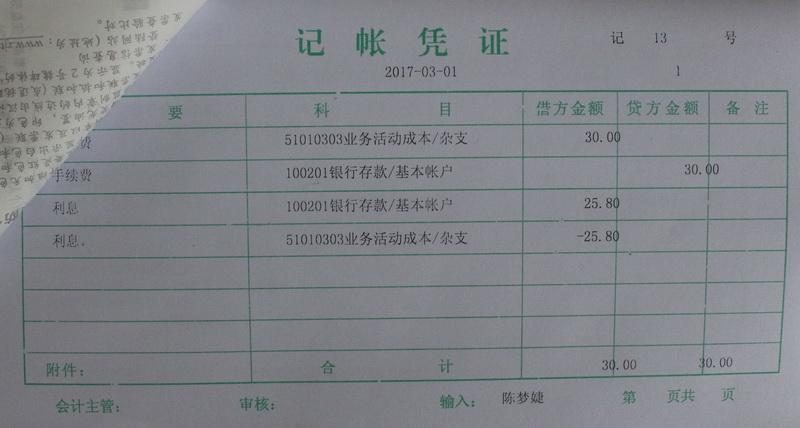 记帐凭证
记 13 号
2017-03-01 1
要 科 目 借方金额 贷方金额 备注
费 51010303业务活动成本/杂支 30.00
手续费 100201银行存款/基本帐户 30.00
利息 100201银行存款/基本帐户 25.80
利息. 51010303业务活动成本/杂支 -25.80
附件: 合 计 30.00 30.00
会计主管: 审核: 输入: 陈梦婕 第 页共 页